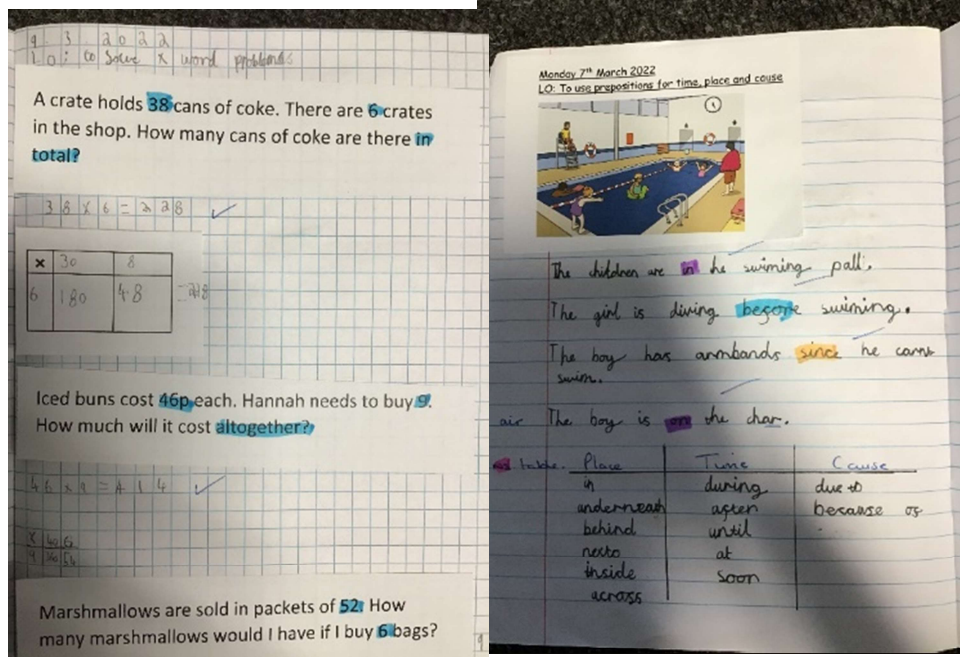 9.3.2022
LO: to solve x word problems
A crate holds 38 cans of coke. There are 6 crates
in the shop. How many cans of coke are there in
total?
38 x 6 = 228
x 30 8
6 180 48 =228
Iced buns cost 46p each. Hannah needs to buy 9.
How much will it cost altogether?
46 x 9 = 414
x 40 6
9 360 54
Marshmallows are sold in packets of 52. How
many marshmallows would I have if I buy 6 bags?
Monday 7th March 2022
LO: To use prepositions for time, place and cause
The children are in the swiming pall.
The girl is diving before swiming.
The boy has armbands since he cannt
swim.
air The boy is on the char.
table. Place Time Cause
in during due to
anderneath after because of
behind until
nexto at
inside soon
across